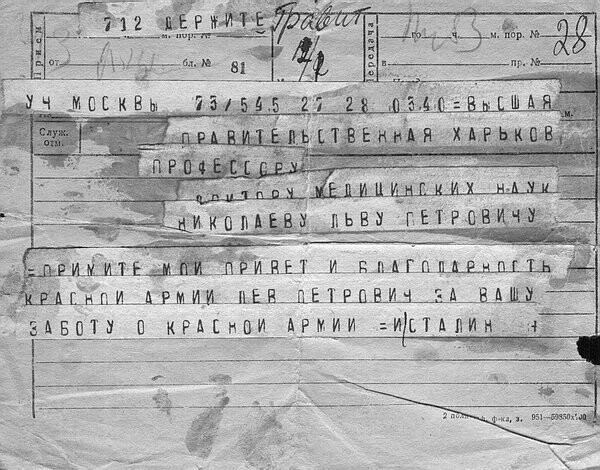 712 ДЕРЖИТЕ
Правит
Прием
го ч. м. пор. №
м. пор. №
Передача
28
от бл. № 81
в. пр. №
УЧ МОСКВЫ 73/545 27 28 0340=ВЫСШАЯ
м.
Служ. отм.
ПРАВИТЕЛЬСТВЕННАЯ ХАРЬКОВ
ПРОФЕССОРУ
ДОКТОРУ МЕДИЦИНСКИХ НАУК
НИКОЛАЕВУ ЛЬВУ ПЕТРОВИЧУ
=ПРИМИТЕ МОЙ ПРИВЕТ И БЛАГОДАРНОСТЬ
КРАСНОЙ АРМИИ ЛЕВ ПЕТРОВИЧ ЗА ВАШУ
ЗАБОТУ О КРАСНОЙ АРМИИ =И/СТАЛИН +
ф-ка, з. 951—59850x100